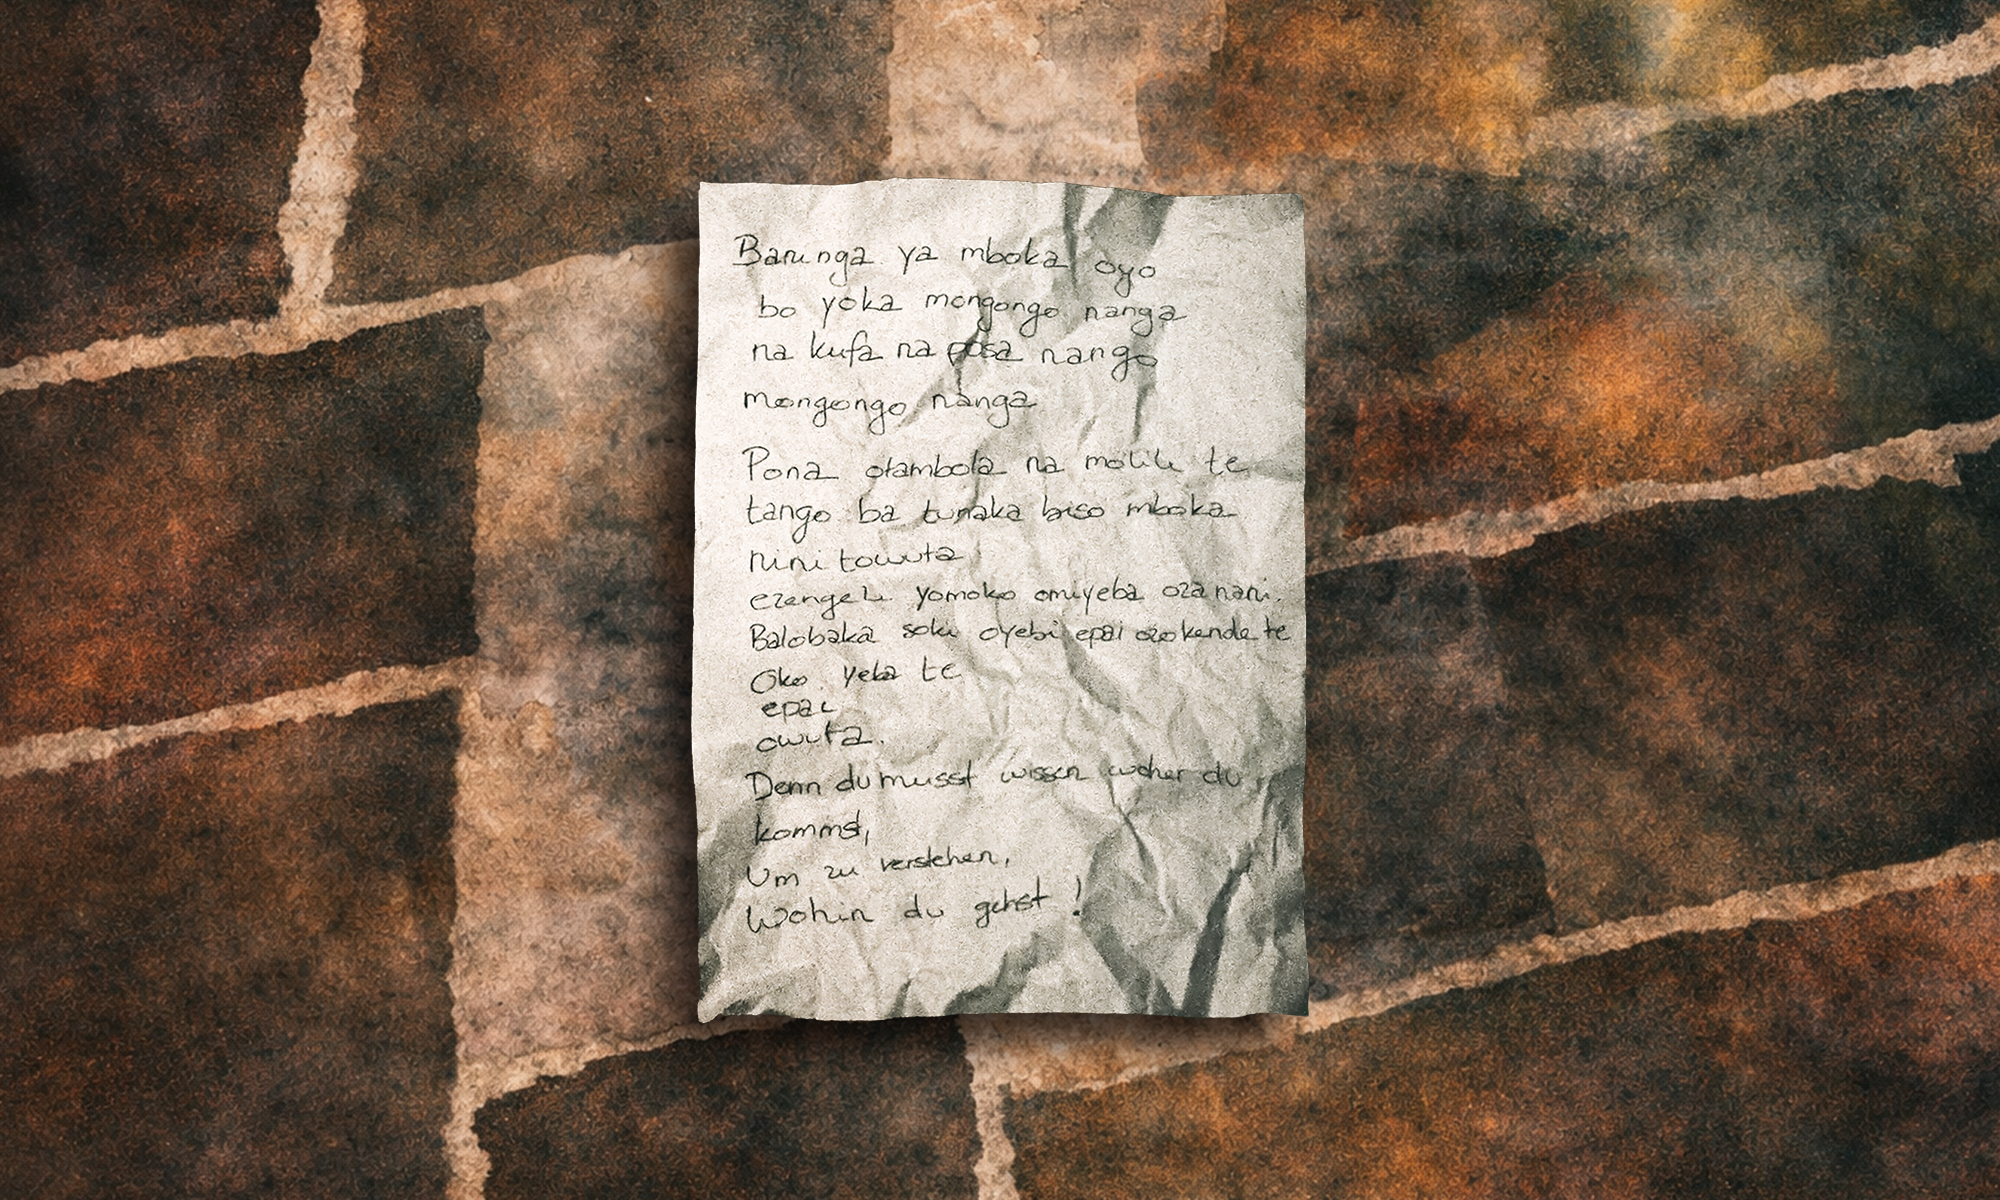 Baninga ya mboka oyo
bo yoka mongongo nanga
na kufa na posa nango
mongongo nanga
Pona otambola na molili te
tango ba tunaka biso mboka
nini towuta
ezangeli yomoko omiyeba oza nani.
Balobaka soki oyebi epai ozokende te
Oko yeba te
epai
owuta.
Denn du musst wissen woher du
kommst,
Um zu verstehen,
Wohin du gehst !